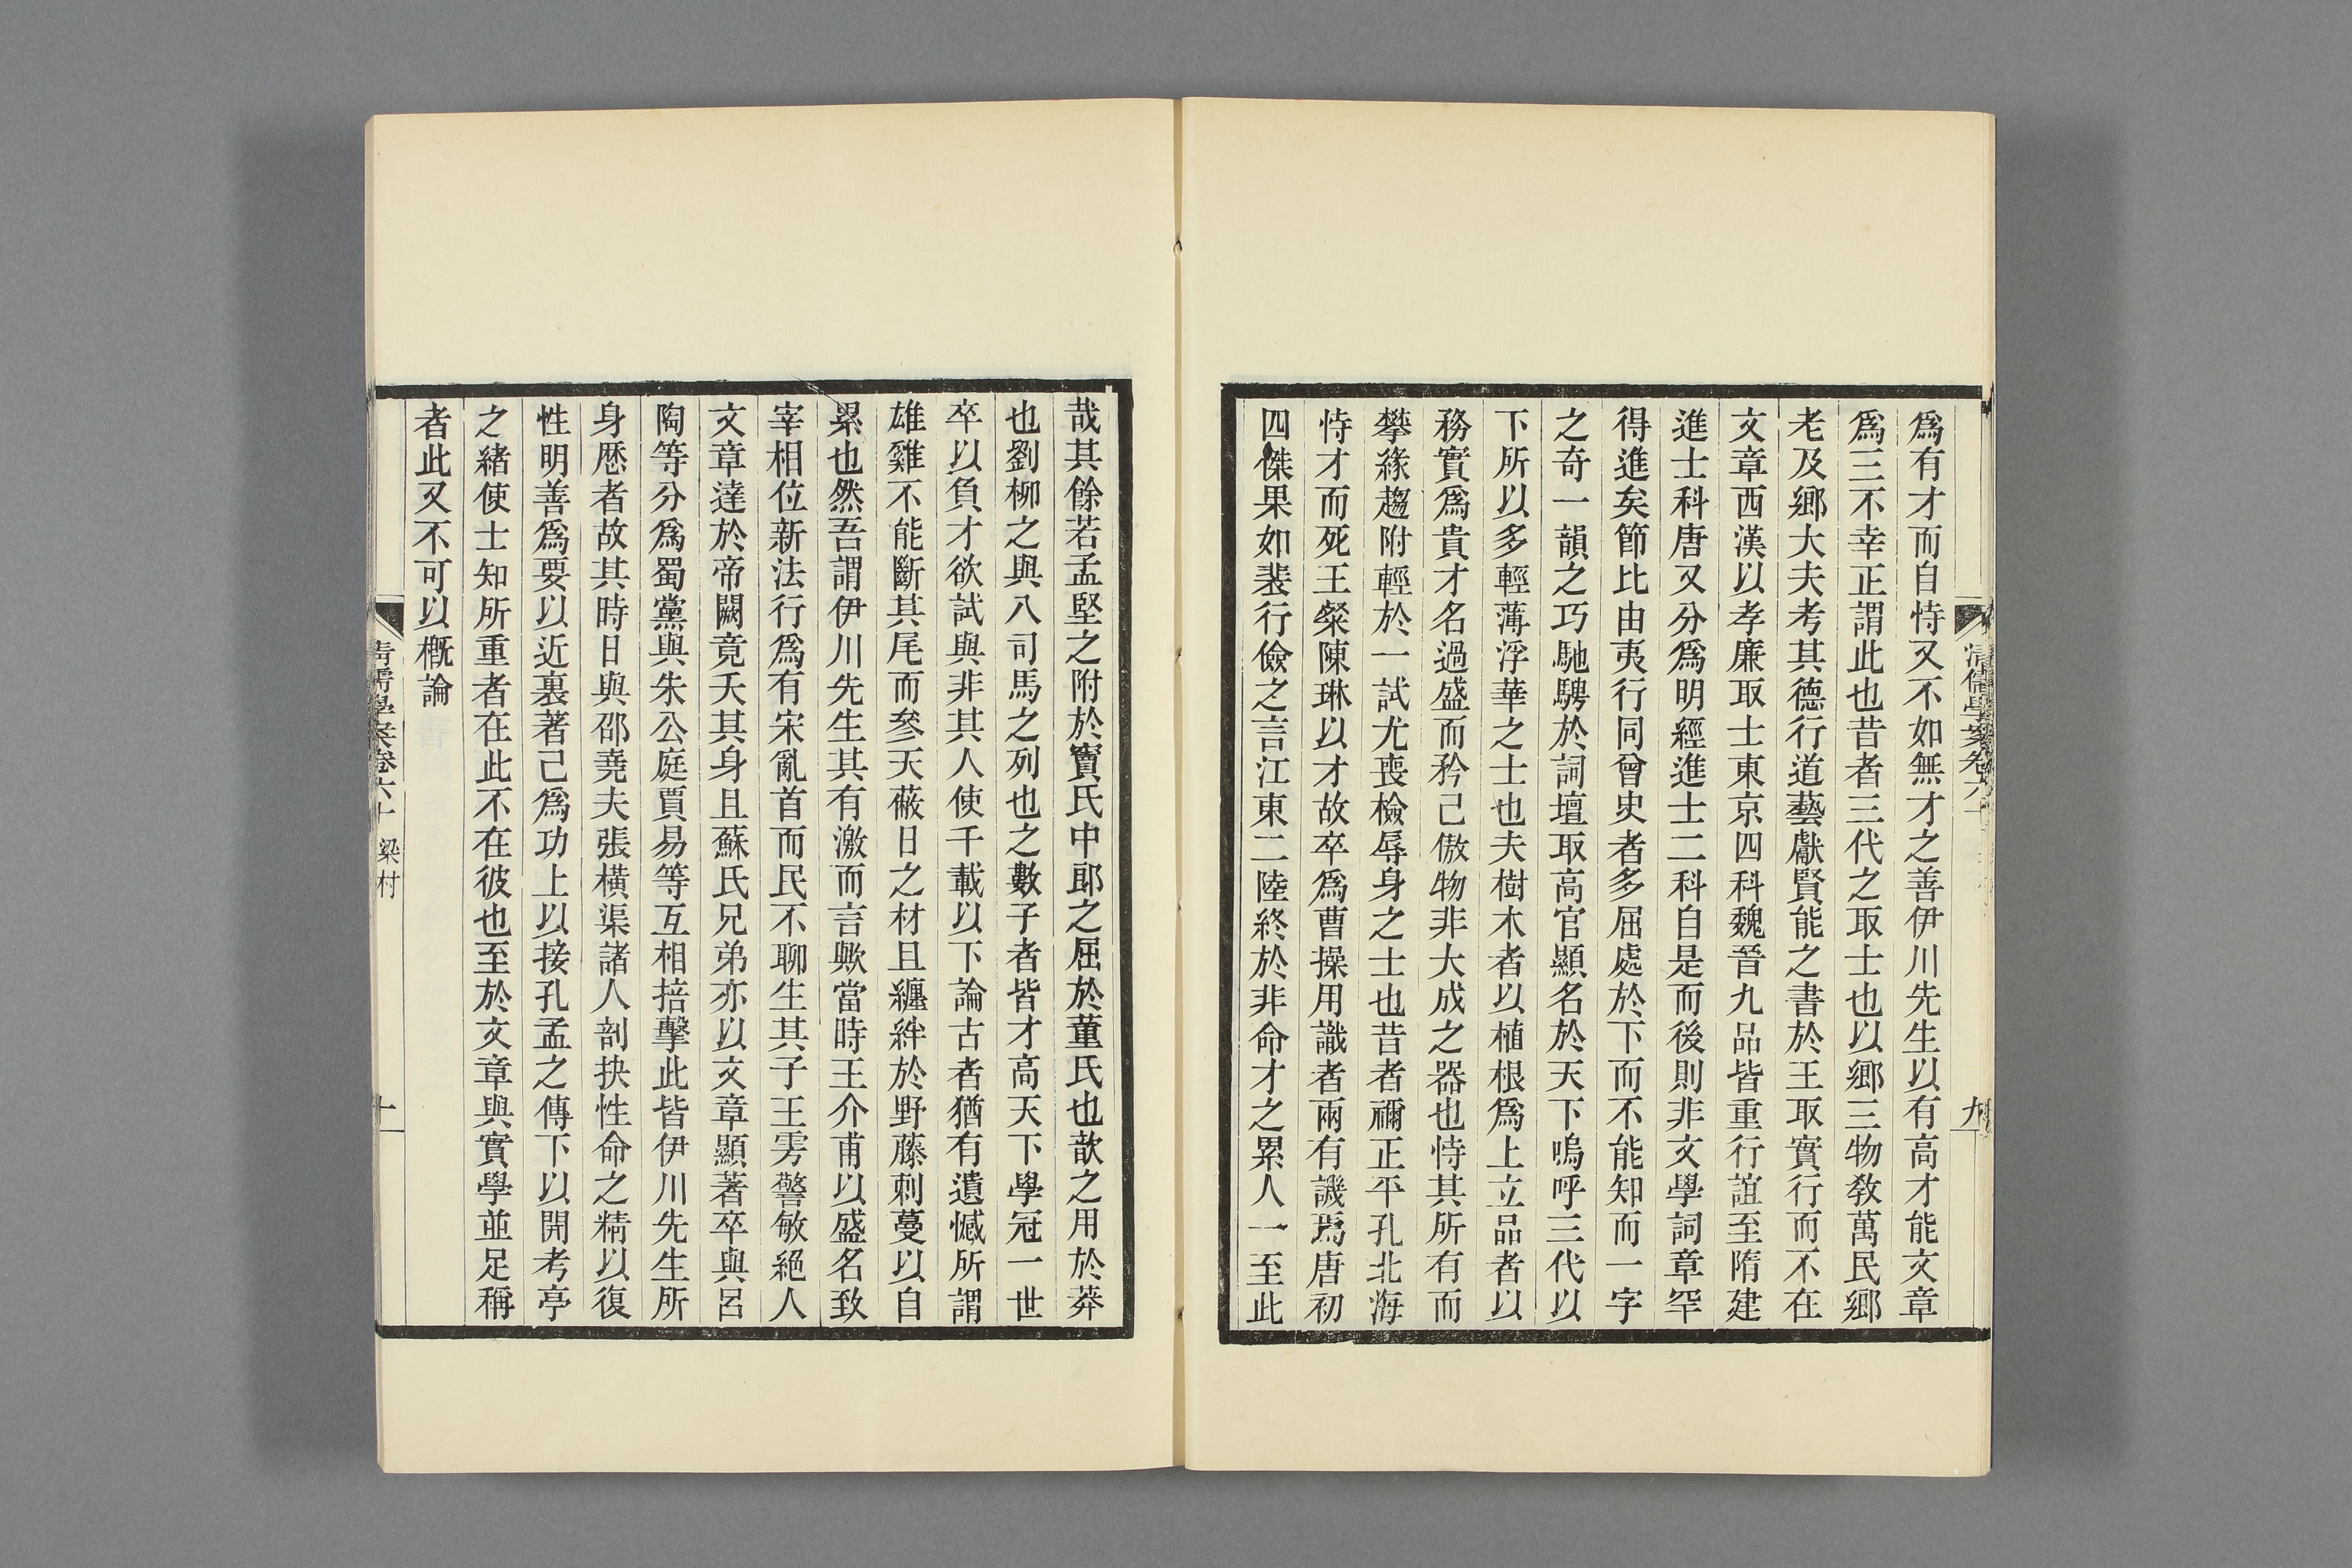 爲有才而自恃又不如無才之善伊川先生以有高才能文章
爲三不幸正謂此也昔者三代之取士也以鄉三物敎萬民鄉
老及鄉大夫考其德行道藝獻賢能之書於王取實行而不在
文章西漢以孝廉取士東京四科魏晉九品皆重行誼至隋建
進士科唐又分爲明經進士二科自是而後則非文學詞章罕
得進矣節比由夷行同曾史者多屈處於下而不能知而一字
之奇一韻之巧馳騁於詞壇取高官顯名於天下嗚呼三代以
下所以多輕薄浮華之士也夫樹木者以植根爲上立品者以
務實爲貴才名過盛而矜己傲物非大成之器也恃其所有而
攀緣趨附輕於一試尤喪檢辱身之士也昔者禰正平孔北海
恃才而死王粲陳琳以才故卒爲曹操用識者兩有譏焉唐初
四傑果如裴行儉之言江東二陸終於非命才之累人一至此
哉其餘若孟堅之附於竇氏中郎之屈於董氏也歆之用於莽
也劉柳之與八司馬之列也之數子者皆才高天下學冠一世
卒以負才欲試與非其人使千載以下論古者猶有遺憾所謂
雄雞不能斷其尾而參天蔽日之材且纏絆於野藤刺蔓以自
累也然吾謂伊川先生其有激而言歟當時王介甫以盛名致
宰相位新法行爲有宋亂首而民不聊生其子王雱警敏絕人
文章達於帝闕竟夭其身且蘇氏兄弟亦以文章顯著卒與呂
陶等分爲蜀黨與朱公庭賈易等互相掊擊此皆伊川先生所
身歷者故其時日與邵堯夫張橫渠諸人剖抉性命之精以復
性明善爲要以近裏著己爲功上以接孔孟之傳下以開考亭
之緒使士知所重者在此不在彼也至於文章與實學並足稱
者此又不可以概論
清儒學案卷六十 梁村
十